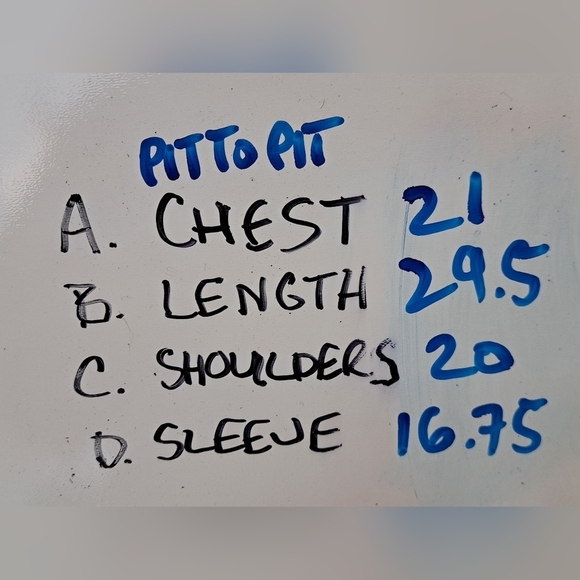 PIT TO PIT
A. CHEST 21
B. LENGTH 29.5
C. SHOULDERS 20
D. SLEEVE 16.75